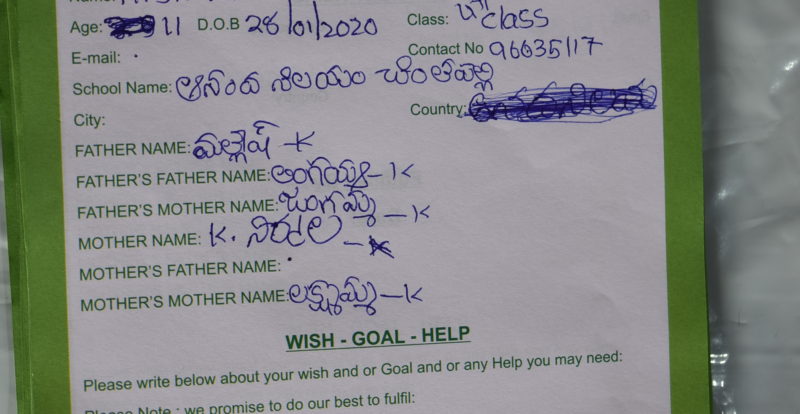 Age: 11 D.O.B 28/01/2020 Class: 4th class
E-mail: Contact No 96635117
School Name: ఆనంద నిలయం చింతపల్లి
City: Country:
FATHER NAME: మల్లేష్ - K
FATHER'S FATHER NAME: లింగయ్య - K
FATHER'S MOTHER NAME: జంగమ్మ - K
MOTHER NAME: K. నిర్మల
MOTHER'S FATHER NAME:
MOTHER'S MOTHER NAME: లక్ష్మమ్మ - K
WISH - GOAL - HELP
Please write below about your wish and or Goal and or any Help you may need:
Please Note : we promise to do our best to fulfil: